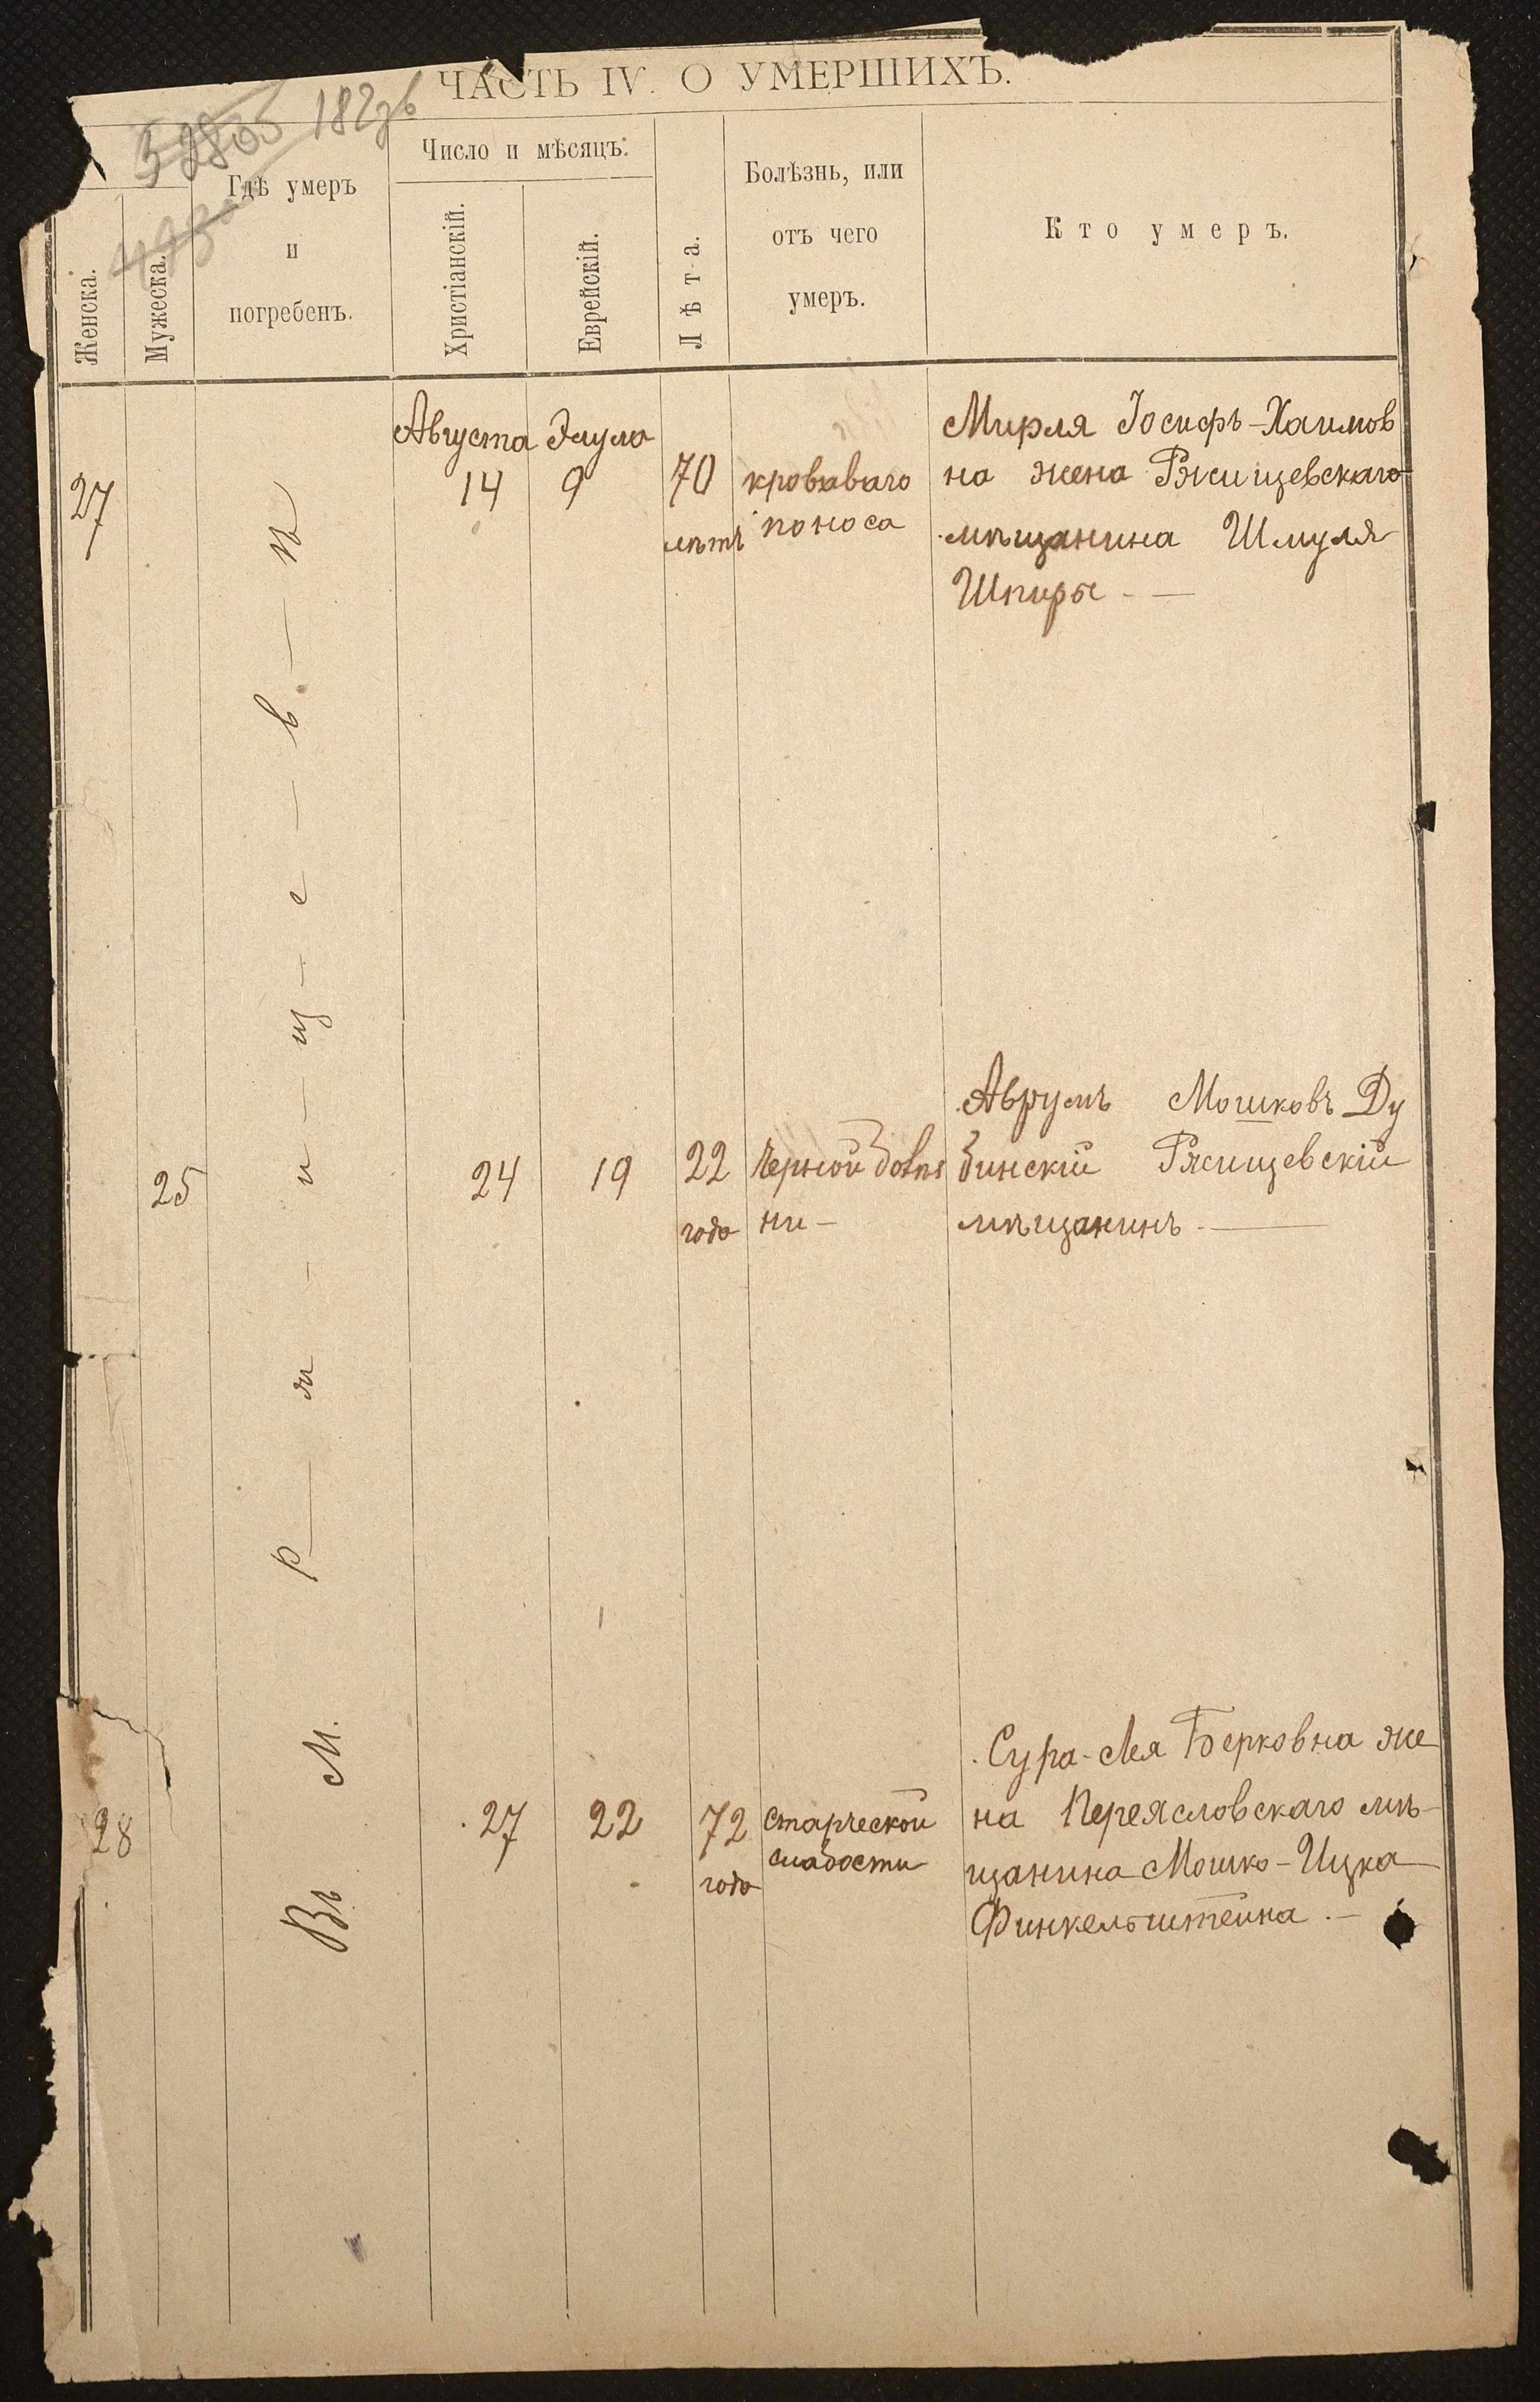 ЧАСТЬ IV. О УМЕРШИХЪ.
182зв
Женска.
Мужеска.
Гдѣ умеръ
и
погребенъ.
Число и мѣсяцъ.
Христіанскій.
Еврейскій.
Лѣта.
Болѣзнь, или
отъ чего
умеръ.
Кто умеръ.
Въ М. Р-ж-и-щ-е-в-ѣ
Августа Элула
27 14 9 70 лѣтъ
кроваваго
поноса
Мирля Іосифъ-Хаимов
на жена Ржищевскаго
мѣщанина Шмуля
Шпиры - —
25 24 19 22 года
Черной болѣз
ни -
Аврумъ Мошковъ Ду
бинскій Ржищевскій
мѣщанинъ - —
28 27 22 72 года
старческой
слабости
Сура-Лея Берковна же
на Переясловскаго мѣ-
щанина Мошко-Ицка
Финкельштейна . -